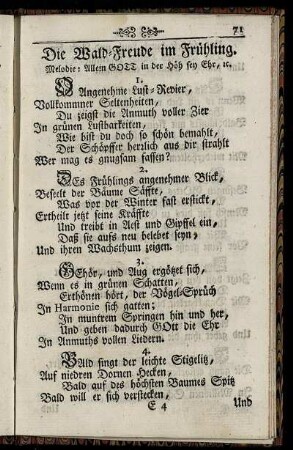 71
Die Wald-Freude im Frühling.
Melodie: Allein GOTT in der Höh sey Ehr, ɾc.
1.
O Angenehme Lust-Revier,
Vollkommner Seltenheiten,
Du zeigst die Anmuth voller Zier
In grünen Lustbarkeiten,
Wie bist du doch so schön bemahlt,
Der Schöpffer herzlich aus dir strahlt
Wer mag es gnugsam fassen?
2.
DEs Frühlings angenehmer Blick,
Beseelt der Bäume Säffte,
Was vor der Winter fast erstickt,
Ertheilt jetzt seine Kräffte
Und treibt in Aest und Gipffel ein,
Daß sie aufs neu belebet seyn,
Und ihren Wachsthum zeigen.
3.
GEhör, und Aug ergötzet sich,
Wenn es in grünen Schatten,
Erthönen hört, der Vögel-Sprüch
In Harmonie sich gatten;
In muntrem Springen hin und her,
Und geben dadurch GOtt die Ehr
In Anmuths vollen Liedern.
4.
BAld singt der leichte Stigelitz,
Auf niedren Dornen Hecken,
Bald auf des höchsten Baumes Spitz
Bald will er sich verstecken,
E 4 Und